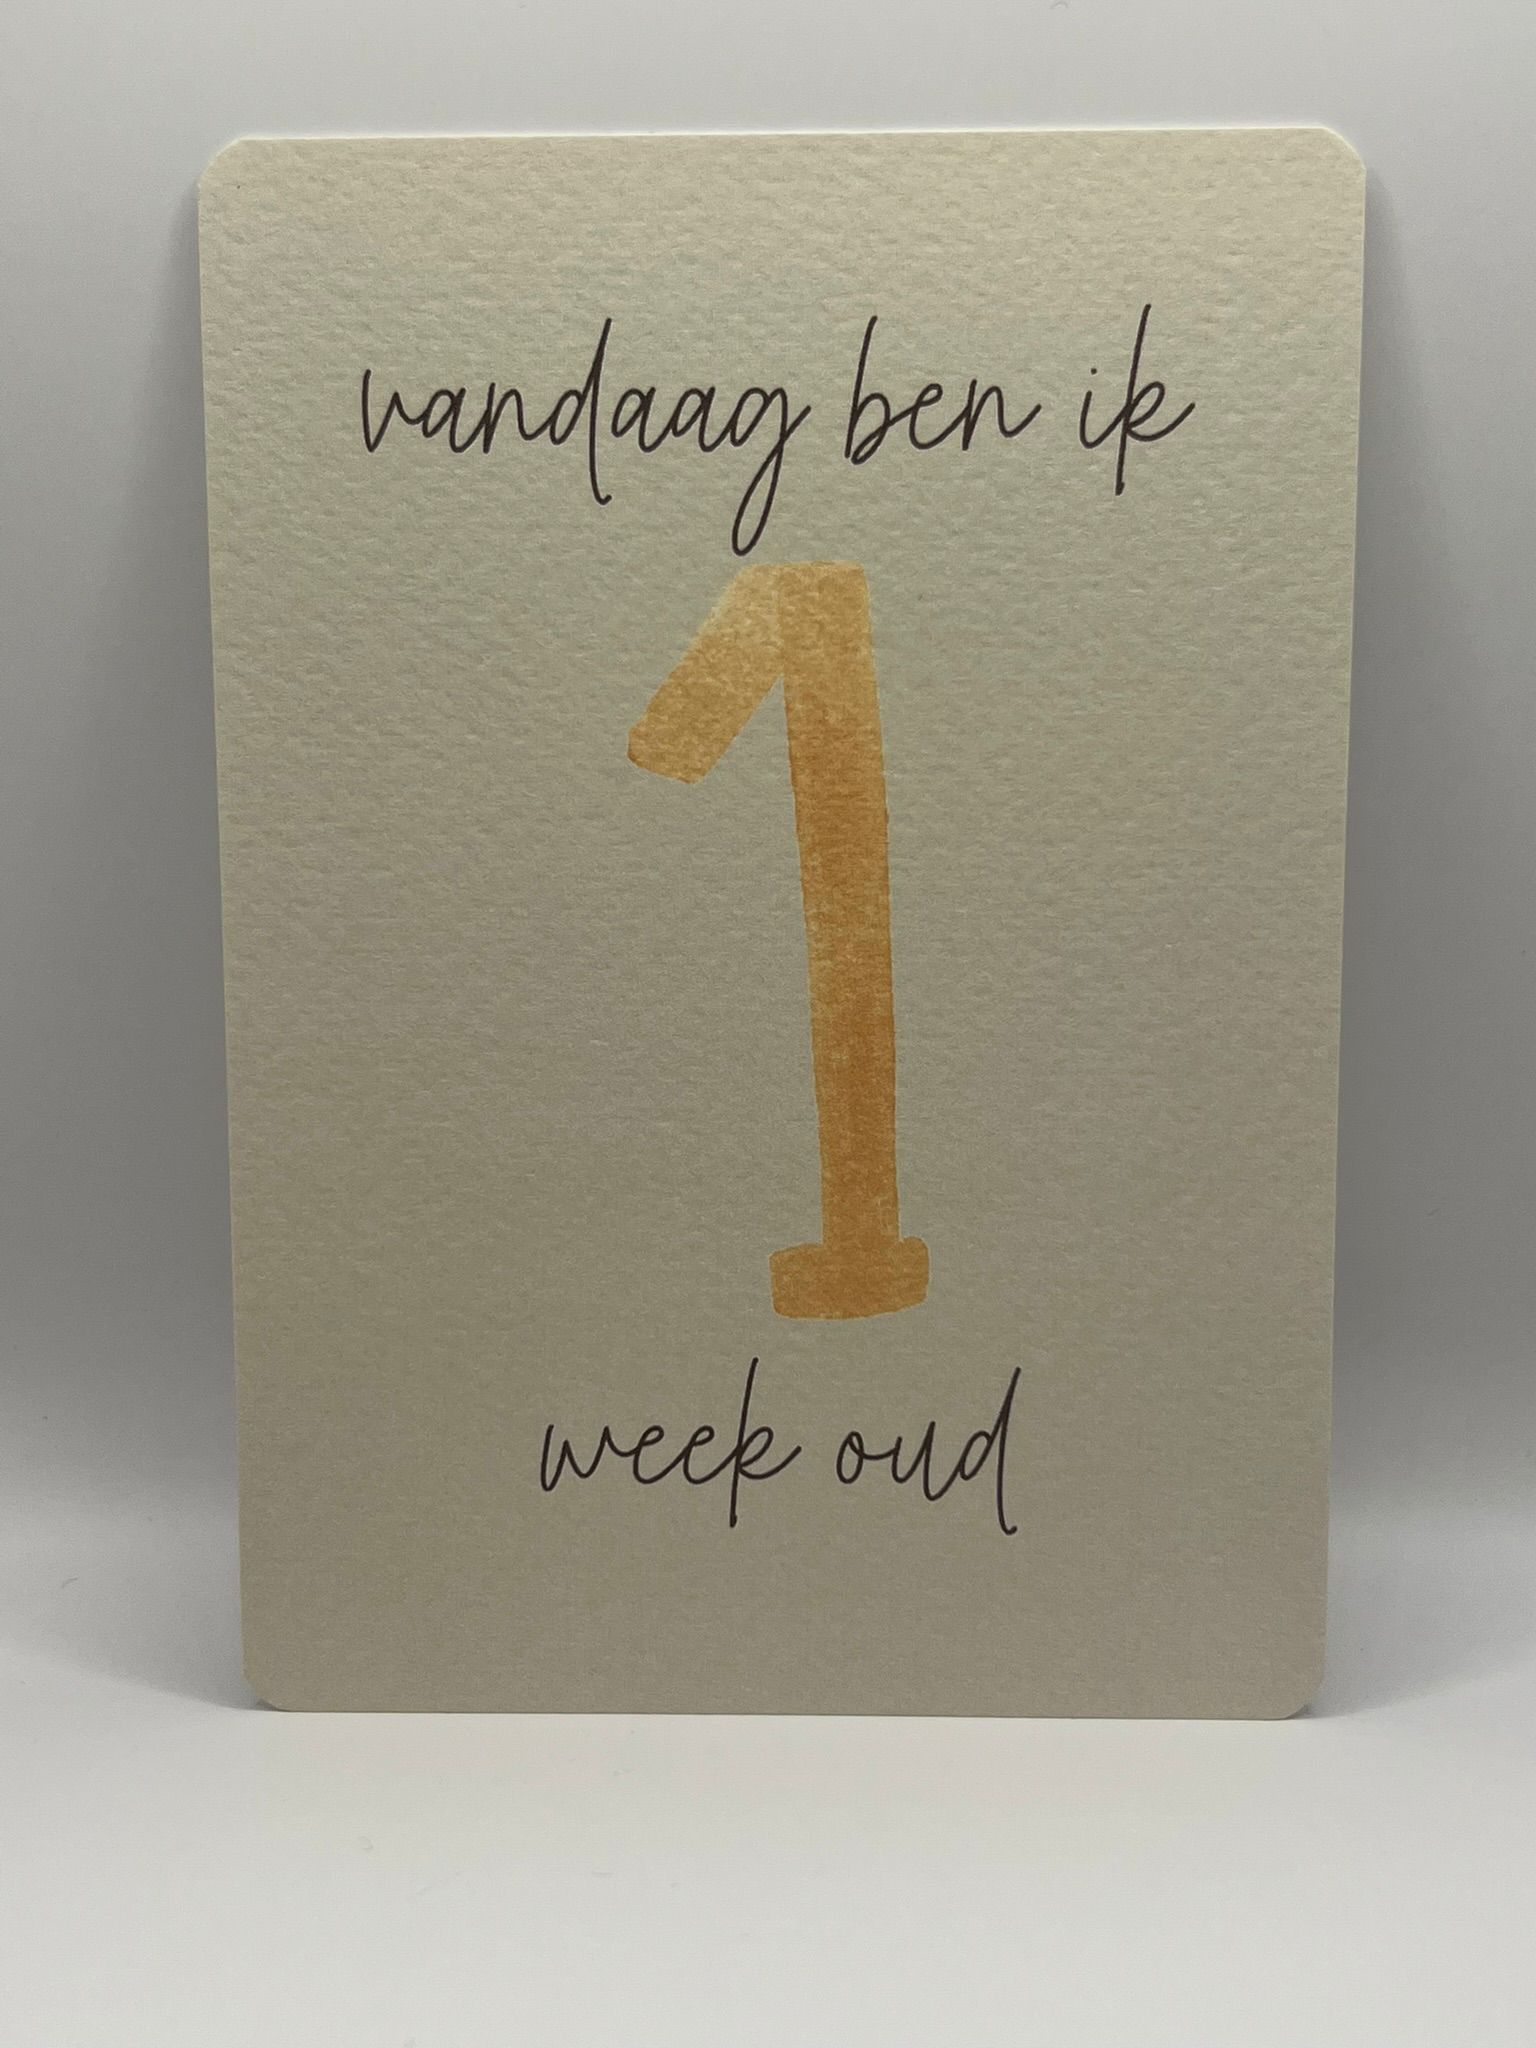 vandaag ben ik
1
week oud